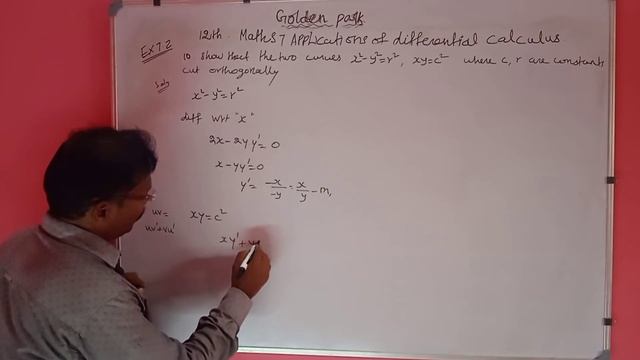 Golden park
12th Maths 7 Applications of differential calculus
EX 7.2
10 show that the two curves x²-y²=r², xy=c² where c, r are constants
cut orthogonally
Soln
x²-y²=r²
diff wrt "x"
2x-2yy'=0
x-yy'=0
y' = -x/-y = x/y - m₁
uv= xy=c²
uv'+vu'
xy'+